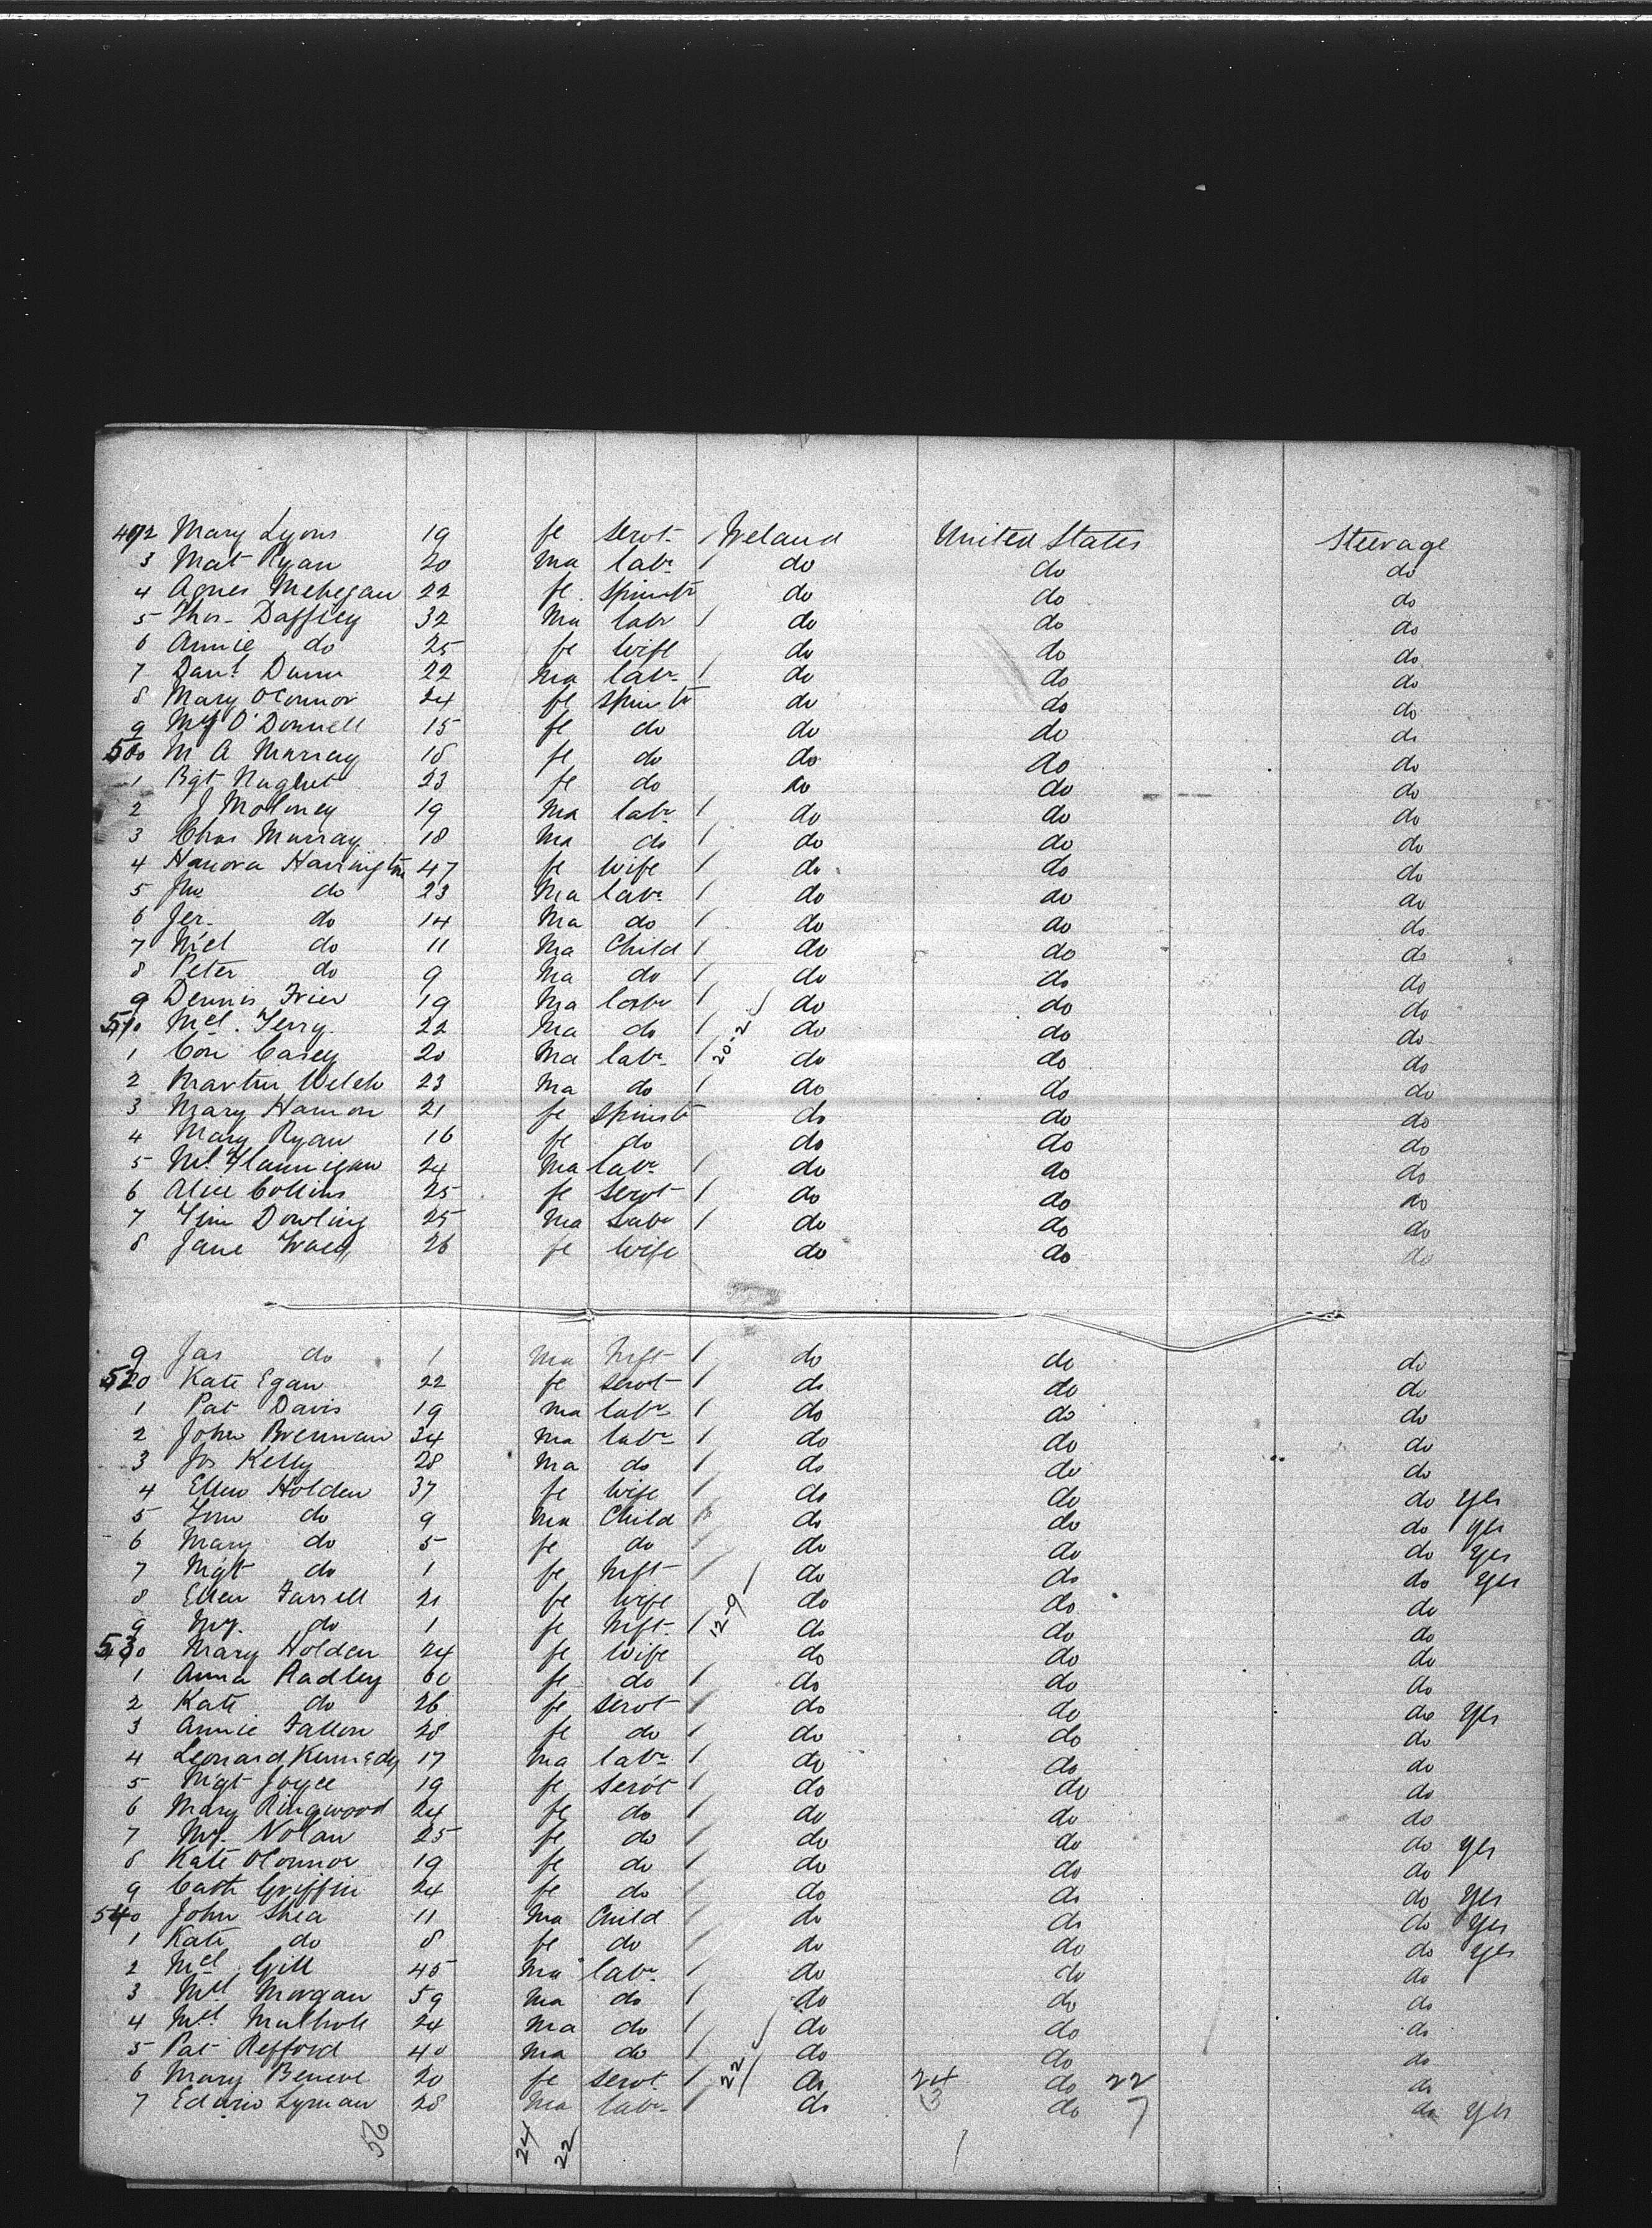 492 Mary Lyons 19 fe servt / Ireland United States Steerage
3 Mat Ryan 20 Ma labr / do do do
4 Agnes Mehegan 22 fe spinstr do do do
5 Thos. Daffley 32 Ma labr / do do do
6 Annie do 25 fe wife do do do
7 Danl. Dunn 22 Ma labr / do do do
8 Mary OConnor 24 fe spinstr do do do
9 My O'Donnell 15 fe do do do do
500 M. A Murray 18 fe do do do do
1 Bgt 23 fe do do do do
2 J Moloney 19 Ma labr / do do do
3 Chas Murray 18 Ma do / do do do
4 Hanora Harrington 47 fe wife / do do do
5 Jno do 23 Ma labr / do do do
6 Jer. do 14 Ma do / do do do
7 do 11 Ma Child / do do do
8 Peter do 9 Ma do / do do do
9 Dennis Frier 19 Ma labr / do do do
510 Mcl. Terry 22 Ma do / do do do
1 Con Casey 20 Ma labr / 20-2 do do do
2 Martin Welch 23 Ma do / do do do
3 Mary Hannon 21 fe spinstr do do do
4 Mary Ryan 16 fe do do do do
5 Ml Flannigan 24 Ma labr / do do do
6 Alice Collins 25 fe servt / do do do
7 Tim Dowling 25 Ma labr / do do do
8 Jane 26 fe wife do do do
9 Jas do 1 Ma Inft / do do do
520 Kate Egan 22 fe servt / do do do
1 Pat Davis 19 Ma labr / do do do
2 John Brennan 34 Ma labr / do do do
3 Jos Kelly 28 Ma do / do do do
4 Ellen Holden 37 fe wife / do do do Yes
5 Tom do 9 Ma Child / do do do Yes
6 Mary do 5 fe do / do do do Yes
7 Mgt do 1 fe Inft / do do do Yes
8 Ellen Farrell 21 fe wife do do do
9 My. do 1 fe Inft / 12-9 do do do
530 Mary Holden 24 fe wife do do do
1 Anna Radley 60 fe do / do do do
2 Kate do 26 fe servt / do do do Yes
3 Annie Fallon 28 fe do / do do do
4 Leonard Kennedy 17 Ma labr / do do do
5 Mgt Joyce 19 fe servt / do do do
6 Mary Ringwood 24 fe do / do do do
7 My. Nolan 25 fe do / do do do Yes
8 Kate OConnor 19 fe do / do do do
9 Cath Griffin 24 fe do / do do do Yes
540 John Shea 11 Ma Child / do do do Yes
1 Kate do 8 fe do / do do do Yes
2 Mcl Gill 45 Ma labr / do do do
3 Ml Morgan 59 Ma do / do do do
4 Mcl 24 Ma do / do do do
5 Pat Refford 40 Ma do / do do do
6 Mary 20 fe servt / 22 do 24 do 22 do
7 Lyman 28 Ma labr / do do 7 do Yes
24 22